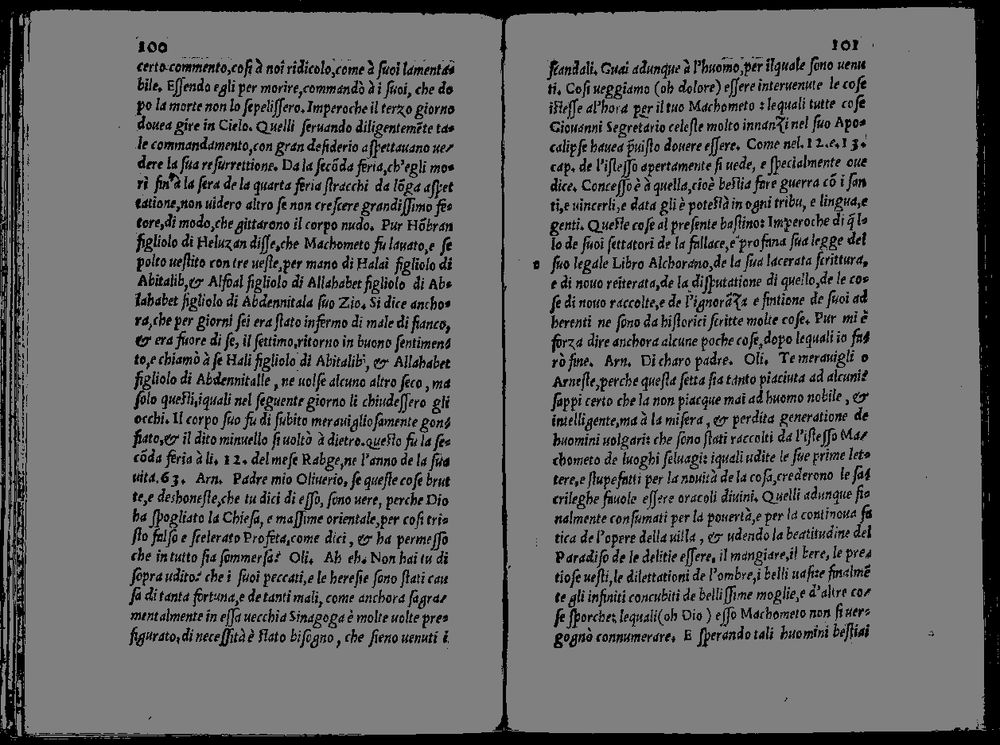 100
certo commento, cosi à noi ridicolo, come à suoi lamenta-
bile. Essendo egli per morire, commandò à i suoi, che do
po la morte non lo sepelissero. Imperoche il terzo giorno
douea gire in Cielo. Quelli seruando diligentemẽte ta-
le commandamento, con gran desiderio aspettauano ue/
dere la sua resurrettione. Da la secõda feria, ch'egli mo-
rì fin'à la sera de la quarta feria stracchi da lõga aspet
tatione, non uidero altro se non crescere grandissimo fe-
tore, di modo, che gittarono il corpo nudo. Pur Hõbran
figliolo di Heluzan disse, che Machometo fu lauato, e se
polto uestito con tre ueste, per mano di Halai figliolo di
Abitalib, & Alfoal figliolo di Allahabet figliolo di Ab-
lahabet figliolo di Abdennitala suo Zio. Si dice ancho-
ra, che per giorni sei era stato infermo di male di fianco,
& era fuore di se, il settimo, ritorno in buono sentimen
to, e chiamò à se Hali figliolo di Abitalib, & Allahabet
figliolo di Abdennitalle, ne uolse alcuno altro seco, ma
solo questi, iquali nel seguente giorno li chiudessero gli
occhi. Il corpo suo fu di subito merauigliosamente gon
fiato, & il dito minuello si uoltò à dietro. questo fu la se-
cõda feria à li. 12. del mese Rabge, ne l'anno de la sua
uita. 63. Arn. Padre mio Oliuerio, se queste cose brut
te, e deshoneste, che tu dici di esso, sono uere, perche Dio
ha spogliato la Chiesa, e massime orientale, per cosi tri-
sto falso e scelerato Profeta, come dici, & ha permesso
che in tutto sia sommersa? Oli. Ah eh. Non hai tu di
sopra udito? che i suoi peccati, e le heresie sono stati cau
sa di tanta fortuna, e de tanti mali, come anchora sagra/
mentalmente in essa uecchia Sinagoga è molte uolte pre-
figurato, di necessità è stato bisogno, che sieno uenuti i
101
scandali. Guai adunque à l'huomo, per ilquale sono uenu
ti. Cosi ueggiamo (oh dolore) essere interuenute le cose
istesse al'hora per il tuo Machometo: lequali tutte cose
Giouanni Segretario celeste molto innanzi nel suo Apo-
calipse hauea p̃uisto douere essere. Come nel. 12. e. 13.
cap. de l'istesso apertamente si uede, e specialmente oue
dice. Concesso è à quella, cioè bestia fare guerra cõ i san
ti, e uincerli, e data gli è potestà in ogni tribu, e lingua, e
genti. Queste cose al presente bastino: Imperoche di q̃l-
lo de suoi settatori de la fallace, e profana sua legge del
suo legale Libro Alchorano, de la sua lacerata scrittura,
e di nouo reiterata, de la disputatione di quello, de le co-
se di nouo raccolte, e de l'ignorãza e fintione de suoi ad
herenti ne sono da historici scritte molte cose. Pur mi è
forza dire anchora alcune poche cose, dopo lequali io fa
rò fine. Arn. Di charo padre. Oli. Te merauigli o
Arneste, perche questa setta sia tanto piaciuta ad alcuni?
sappi certo che la non piacque mai ad huomo nobile, &
intelligente, ma à la misera, & perdita generatione de
huomini uolgari: che sono stati raccolti da l'istesso Ma/
chometo de luoghi seluagi: iquali udite le sue prime let-
tere, e stupefatti per la nouità de la cosa, crederono le sa
crileghe fauole essere oracoli diuini. Quelli adunque fi-
nalmente consumati per la pouertà, e per la continoua fa
tica de l'opere della uilla, & udendo la beatitudine del
Paradiso de le delitie essere, il mangiare, il bere, le pre/
tiose uesti, le dilettationi de l'ombre, i belli uasi e finalmẽ
te gli infiniti concubiti de bellissime moglie, e d'altre co/
se sporche: lequali (oh Dio) esso Machometo non si uer-
gognò connumerare. E sperando tali huomini bestiai